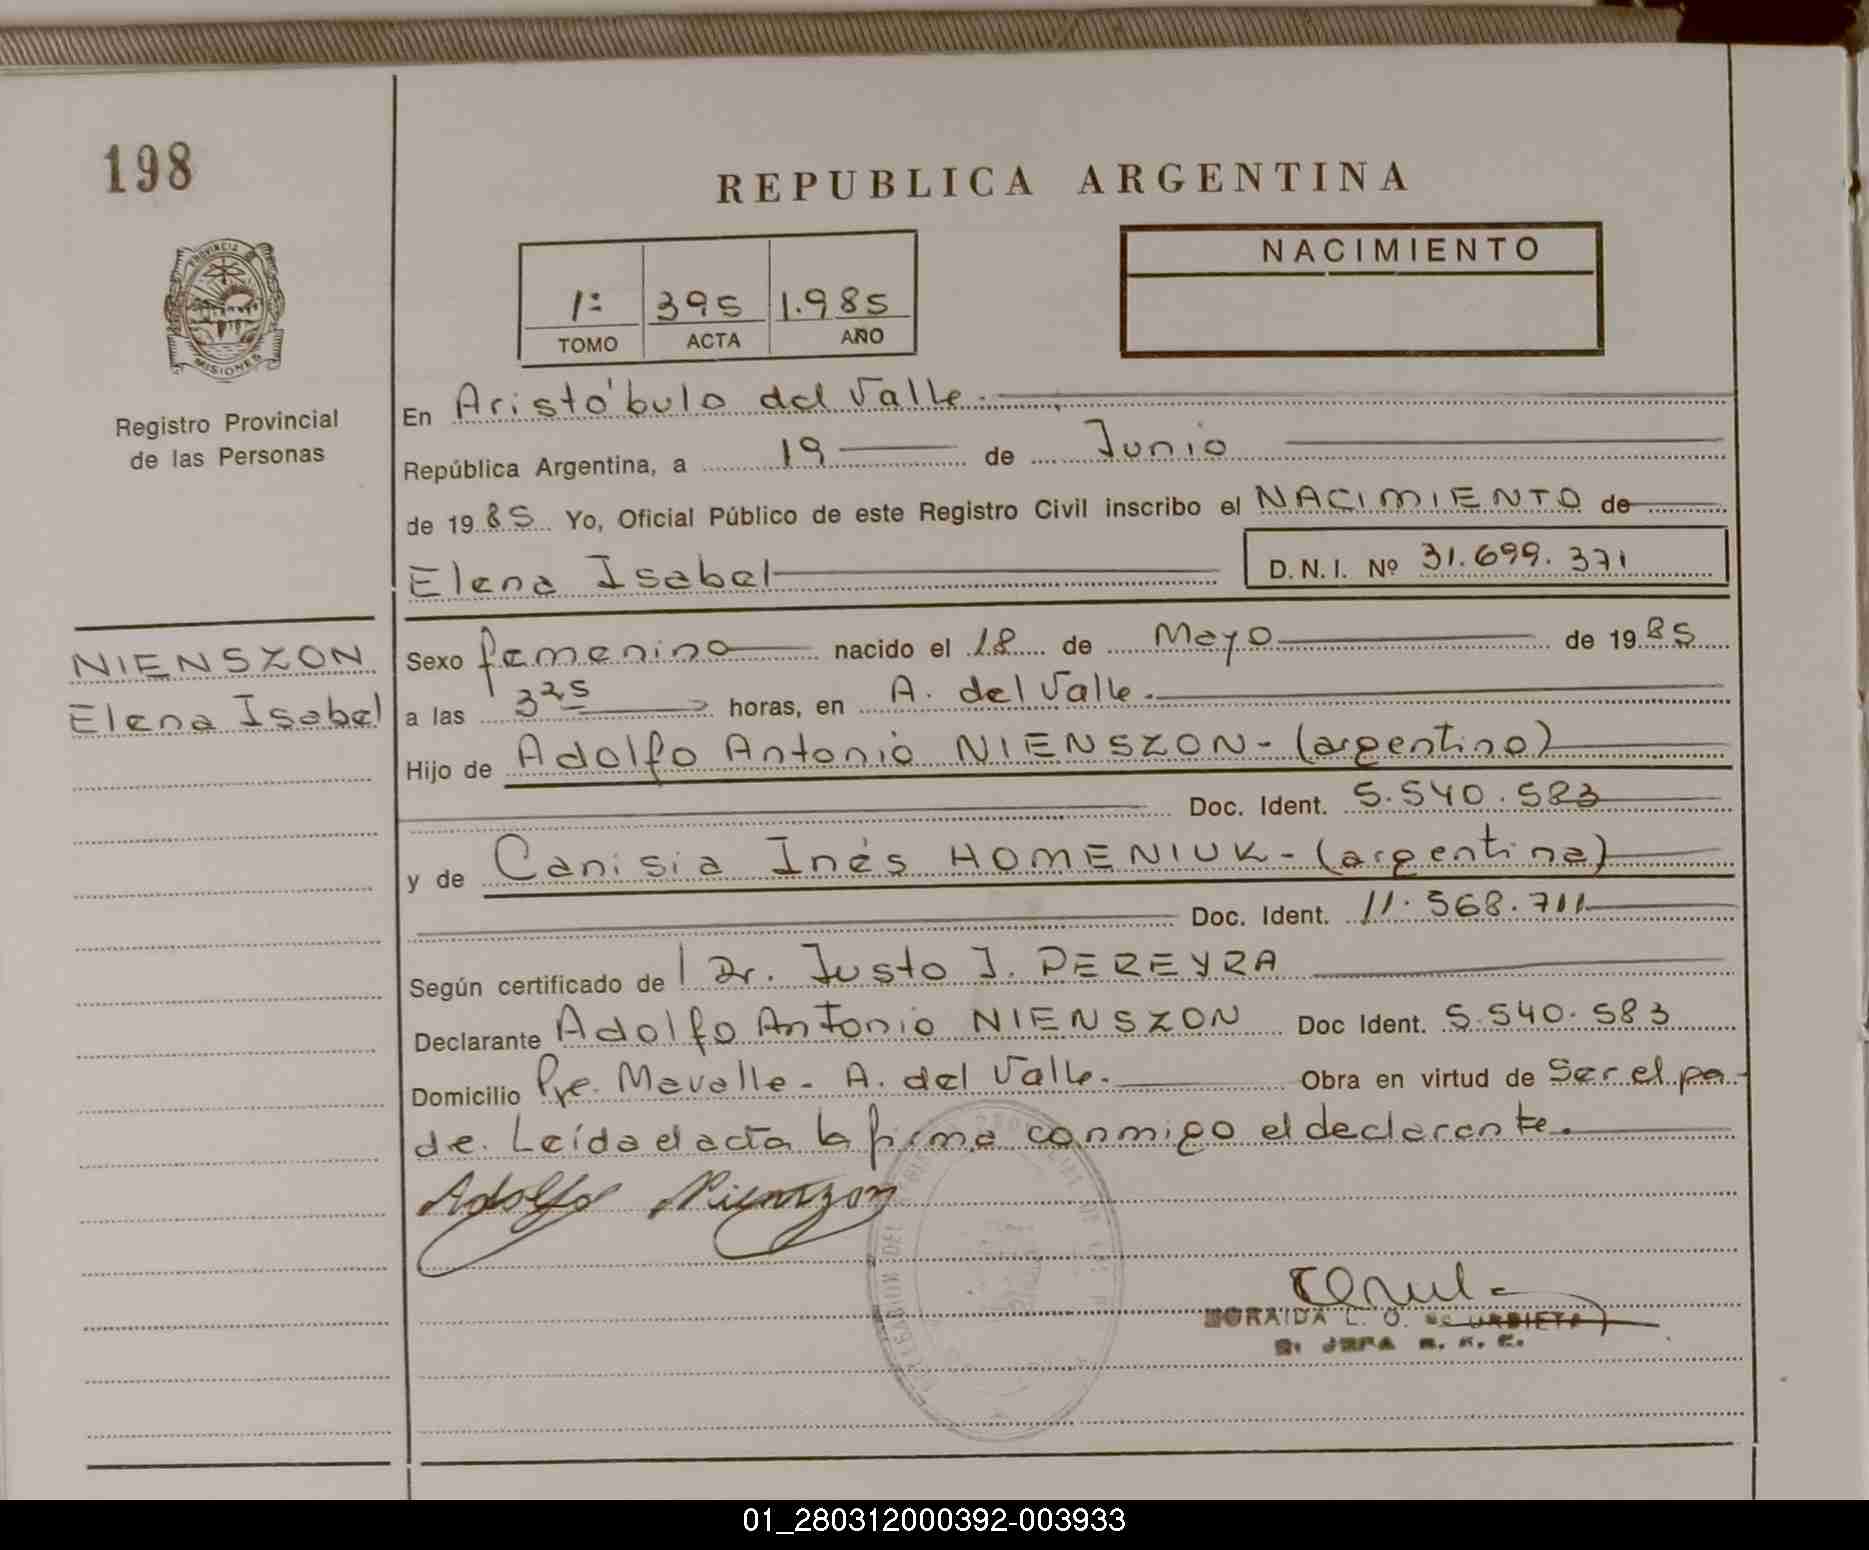 198
REPUBLICA ARGENTINA
PROVINCIA
MISIONES
NACIMIENTO
1º 395 1.985
TOMO ACTA AÑO
Registro Provincial
de las Personas
En Aristóbulo del Valle.
República Argentina, a 19 de Junio
de 1985 Yo, Oficial Público de este Registro Civil inscribo el NACIMIENTO de
Elena Isabel D.N.I. Nº 31.699.371
NIENSZON
Elena Isabel
Sexo femenino nacido el 18 de Mayo de 1985
a las 3 25 horas, en A. del Valle.
Hijo de Adolfo Antonio NIENSZON - (argentino)
Doc. Ident. 5.540.583
y de Canisia Inés HOMENIUK - (argentina)
Doc. Ident. 11.568.711
Según certificado de Dr. Justo J. PEREYRA
Declarante Adolfo Antonio NIENSZON Doc Ident. 5.540.583
Domicilio Pje. Mavalle - A. del Valle. Obra en virtud de Ser el pa-
de. Leída el acta la firma conmigo el declarante.
Adolfo Nienszon
L. O.
01_280312000392-003933